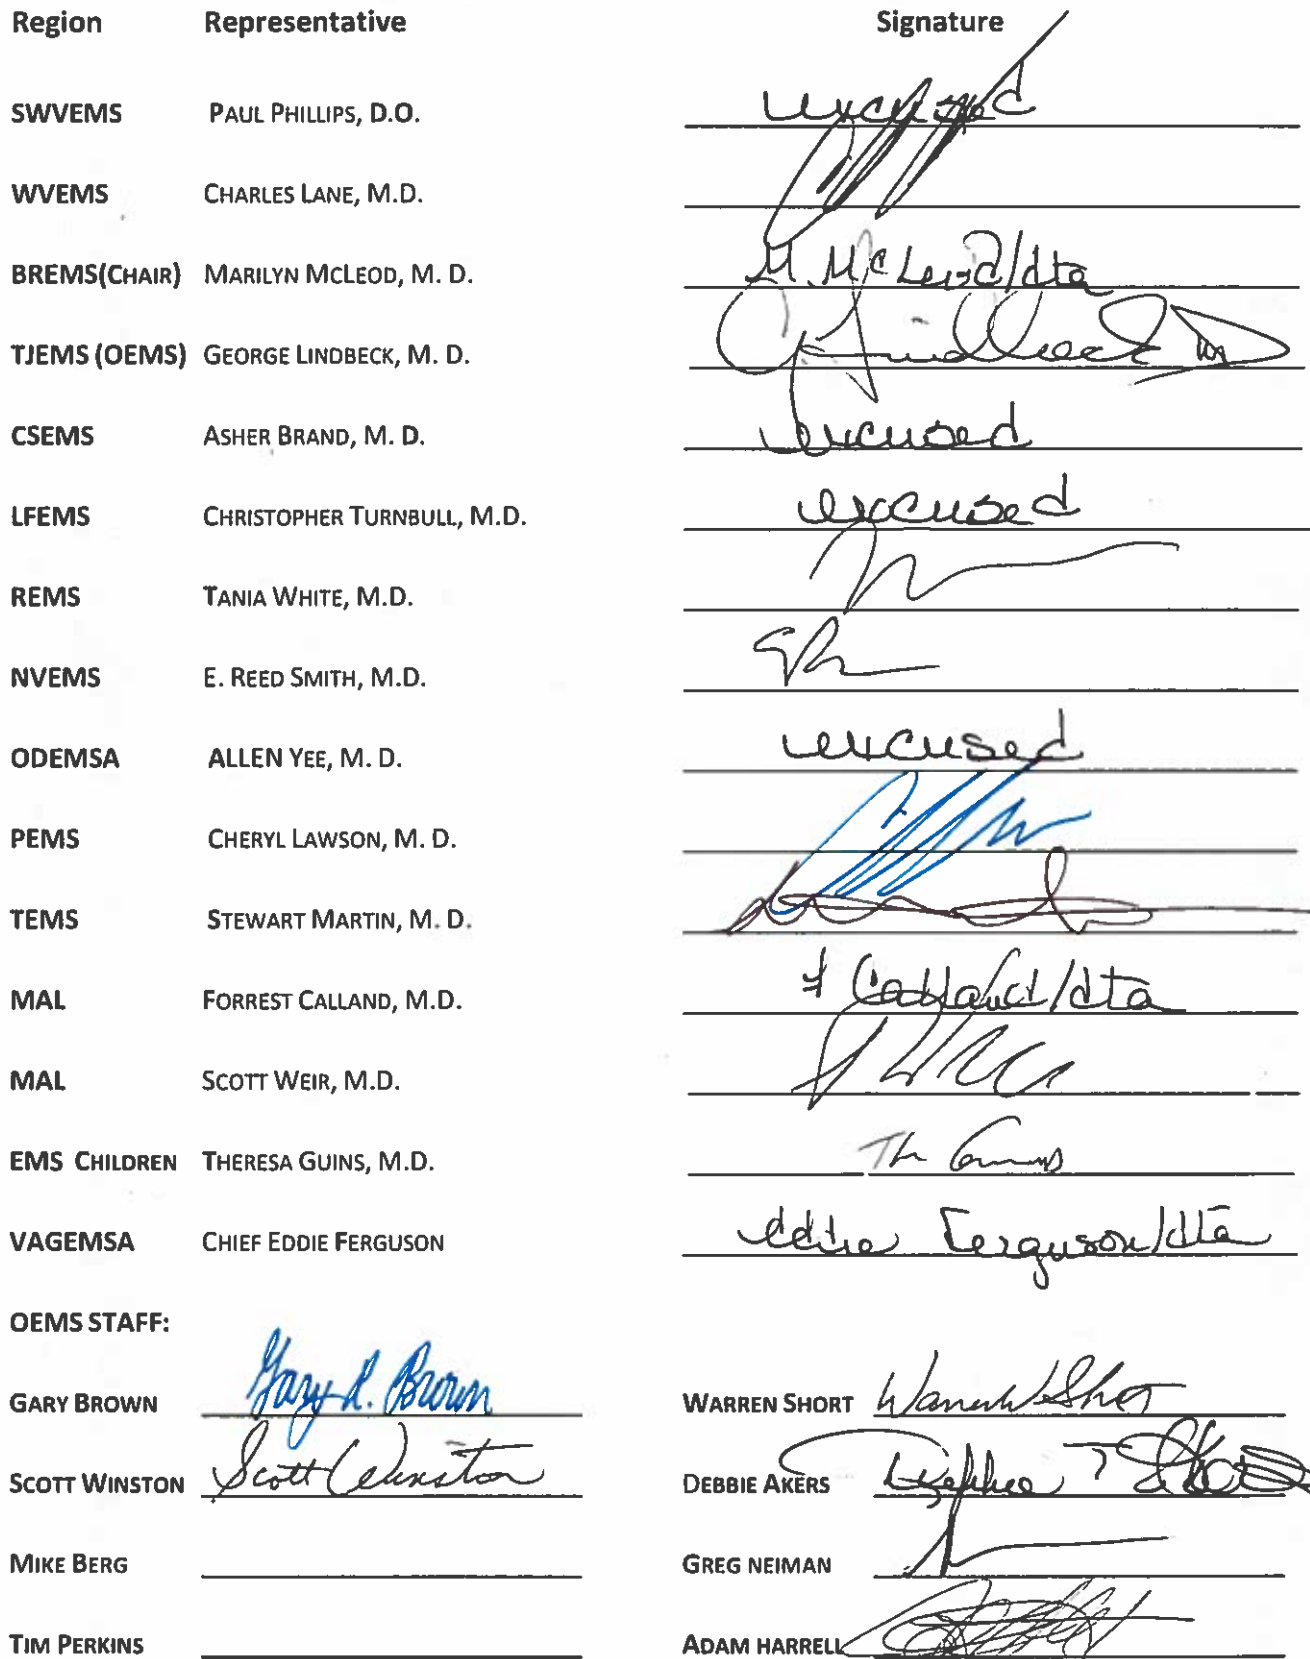 Region Representative Signature
SWVEMS PAUL PHILLIPS, D.O. excused
WVEMS CHARLES LANE, M.D.
BREMS(CHAIR) MARILYN MCLEOD, M. D. M. McLeod/dta
TJEMS (OEMS) GEORGE LINDBECK, M. D. Lindbeck
CSEMS ASHER BRAND, M. D. excused
LFEMS CHRISTOPHER TURNBULL, M.D. excused
REMS TANIA WHITE, M.D.
NVEMS E. REED SMITH, M.D.
ODEMSA ALLEN YEE, M. D. excused
PEMS CHERYL LAWSON, M. D.
TEMS STEWART MARTIN, M. D.
MAL FORREST CALLAND, M.D. f Calland/dta
MAL SCOTT WEIR, M.D.
EMS CHILDREN THERESA GUINS, M.D. Th Guins
VAGEMSA CHIEF EDDIE FERGUSON Eddie Ferguson/dta
OEMS STAFF:
GARY BROWN Gary R. Brown WARREN SHORT Warren Short
SCOTT WINSTON Scott Winston DEBBIE AKERS
MIKE BERG GREG NEIMAN
TIM PERKINS ADAM HARRELL